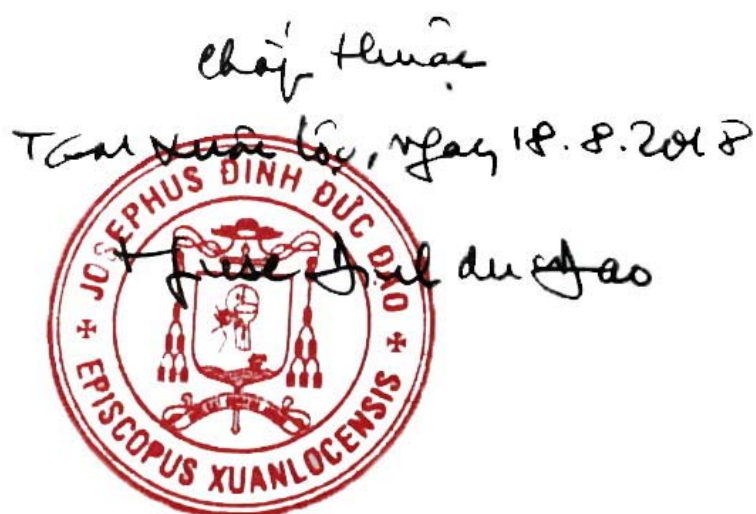 Chấp thuận
TGM Xuân Lộc, ngày 18.8.2018
JOSEPHUS ĐINH ĐỨC ĐẠO
+ Giuse Đinh Đức Đạo
EPISCOPUS XUANLOCENSIS